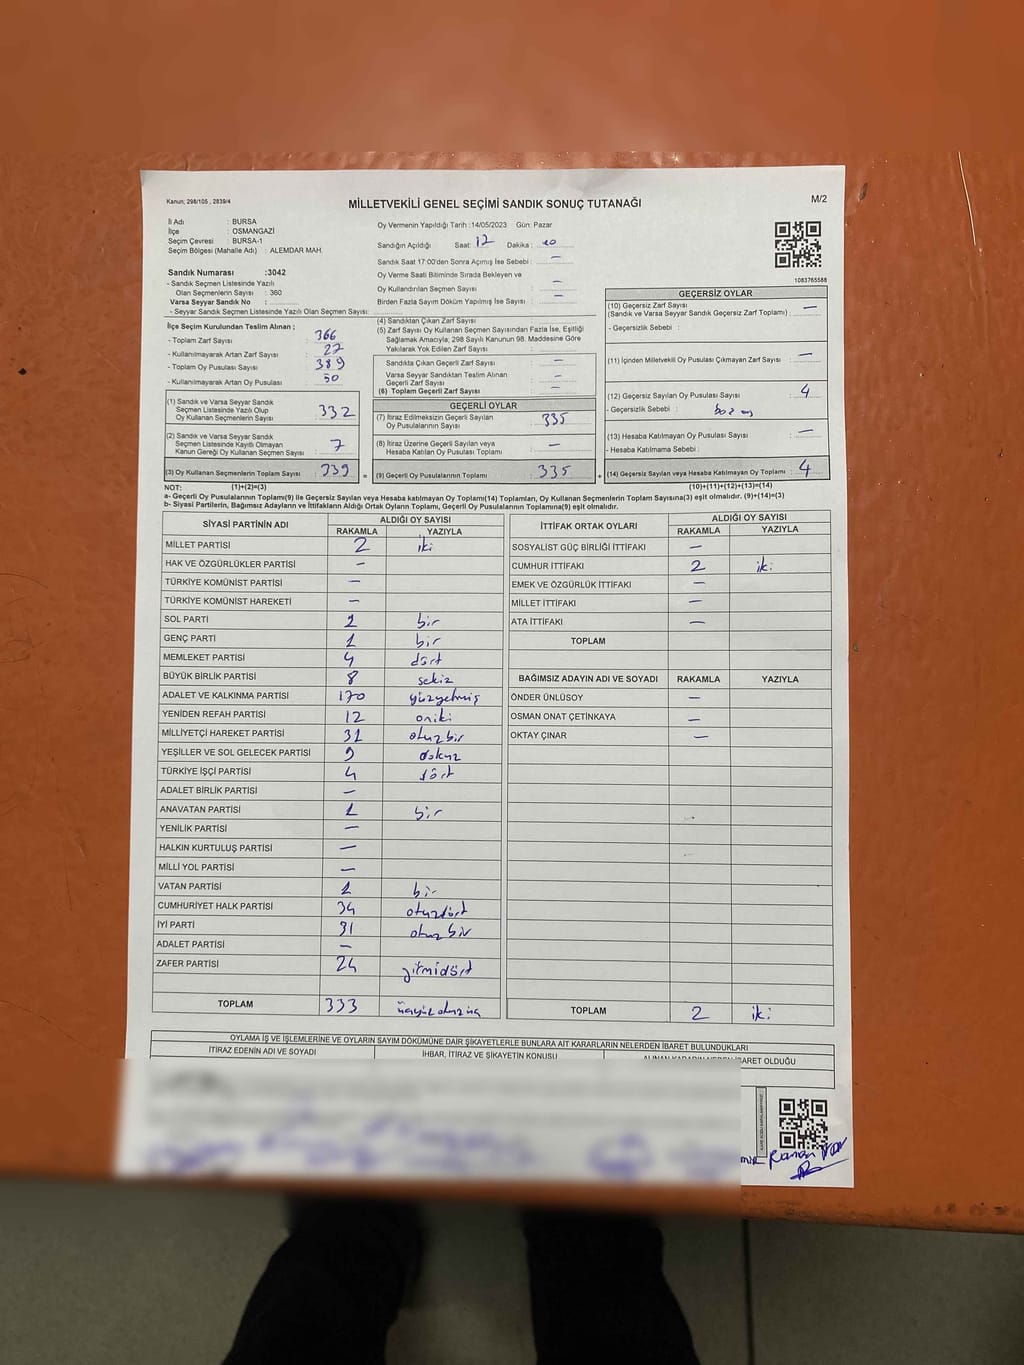 Kanun; 298/105 , 2839/4
MİLLETVEKİLİ GENEL SEÇİMİ SANDIK SONUÇ TUTANAĞI
M/2
İl Adı : BURSA
İlçe : OSMANGAZİ
Seçim Çevresi : BURSA-1
Seçim Bölgesi (Mahalle Adı) : ALEMDAR MAH.
Sandık Numarası :3042
- Sandık Seçmen Listesinde Yazılı
Olan Seçmenlerin Sayısı : 360
Varsa Seyyar Sandık No :
- Seyyar Sandık Seçmen Listesinde Yazılı Olan Seçmen Sayısı:
Oy Vermenin Yapıldığı Tarih :14/05/2023 Gün: Pazar
Sandığın Açıldığı Saat: 17 Dakika :
Sandık Saat 17:00'den Sonra Açımış İse Sebebi : —
Oy Verme Saati Bitiminde Sırada Bekleyen ve
Oy Kullandırılan Seçmen Sayısı : —
Birden Fazla Sayım Döküm Yapılmış İse Sayısı : —
1083765588
İlçe Seçim Kurulundan Teslim Alınan ;
- Toplam Zarf Sayısı : 366
- Kullanılmayarak Artan Zarf Sayısı : 27
- Toplam Oy Pusulası Sayısı : 389
- Kullanılmayarak Artan Oy Pusulası : 50
(1) Sandık ve Varsa Seyyar Sandık
Seçmen Listesinde Yazılı Olup
Oy Kullanan Seçmenlerin Sayısı : 332
(2) Sandık ve Varsa Seyyar Sandık
Seçmen Listesinde Kayıtlı Olmayan
Kanun Gereği Oy Kullanan Seçmen Sayısı : 7
(3) Oy Kullanan Seçmenlerin Toplam Sayısı 339 =
(4) Sandıktan Çıkan Zarf Sayısı
(5) Zarf Sayısı Oy Kullanan Seçmen Sayısından Fazla İse, Eşitliği
Sağlamak Amacıyla; 298 Sayılı Kanunun 98. Maddesine Göre
Yakılarak Yok Edilen Zarf Sayısı :
Sandıkta Çıkan Geçerli Zarf Sayısı : —
Varsa Seyyar Sandıktan Teslim Alınan
Geçerli Zarf Sayısı : —
(6) Toplam Geçerli Zarf Sayısı : —
GEÇERLİ OYLAR
(7) İtiraz Edilmeksizin Geçerli Sayılan
Oy Pusulalarının Sayısı : 335
(8) İtiraz Üzerine Geçerli Sayılan veya
Hesaba Katılan Oy Pusulaları Toplamı : —
(9) Geçerli Oy Pusulalarının Toplamı : 335 +
GEÇERSİZ OYLAR
(10) Geçersiz Zarf Sayısı
(Sandık ve Varsa Seyyar Sandık Geçersiz Zarf Toplamı) : —
- Geçersizlik Sebebi :
(11) İçinden Milletvekili Oy Pusulası Çıkmayan Zarf Sayısı : —
(12) Geçersiz Sayılan Oy Pusulası Sayısı : 4
- Geçersizlik Sebebi : boş oy
(13) Hesaba Katılmayan Oy Pusulası Sayısı : —
- Hesaba Katılmama Sebebi :
(14) Geçersiz Sayılan veya Hesaba Katılmayan Oy Toplamı : 4
NOT: (1)+(2)=(3) (10)+(11)+(12)+(13)=(14)
a- Geçerli Oy Pusulalarının Toplamı(9) ile Geçersiz Sayılan veya Hesaba katılmayan Oy Toplamı(14) Toplamları, Oy Kullanan Seçmenlerin Toplam Sayısına(3) eşit olmalıdır. (9)+(14)=(3)
b- Siyasi Partilerin, Bağımsız Adayların ve İttifakların Aldığı Ortak Oyların Toplamı, Geçerli Oy Pusulalarının Toplamına(9) eşit olmalıdır.
SİYASİ PARTİNİN ADI ALDIĞI OY SAYISI
RAKAMLA YAZIYLA
MİLLET PARTİSİ 2 iki
HAK VE ÖZGÜRLÜKLER PARTİSİ —
TÜRKİYE KOMÜNİST PARTİSİ —
TÜRKİYE KOMÜNİST HAREKETİ —
SOL PARTİ 1 bir
GENÇ PARTİ 1 bir
MEMLEKET PARTİSİ 4 dört
BÜYÜK BİRLİK PARTİSİ 8 sekiz
ADALET VE KALKINMA PARTİSİ 170 yüzyetmiş
YENİDEN REFAH PARTİSİ 12 oniki
MİLLİYETÇİ HAREKET PARTİSİ 31 otuzbir
YEŞİLLER VE SOL GELECEK PARTİSİ 9 dokuz
TÜRKİYE İŞÇİ PARTİSİ 4 dört
ADALET BİRLİK PARTİSİ —
ANAVATAN PARTİSİ 1 bir
YENİLİK PARTİSİ —
HALKIN KURTULUŞ PARTİSİ —
MİLLİ YOL PARTİSİ —
VATAN PARTİSİ 1 bir
CUMHURİYET HALK PARTİSİ 34 otuzdört
İYİ PARTİ 31 otuzbir
ADALET PARTİSİ —
ZAFER PARTİSİ 24 yirmidört
TOPLAM 333 üçyüzotuzüç
İTTİFAK ORTAK OYLARI ALDIĞI OY SAYISI
RAKAMLA YAZIYLA
SOSYALİST GÜÇ BİRLİĞİ İTTİFAKI —
CUMHUR İTTİFAKI 2 iki
EMEK VE ÖZGÜRLÜK İTTİFAKI —
MİLLET İTTİFAKI —
ATA İTTİFAKI —
TOPLAM
BAĞIMSIZ ADAYIN ADI VE SOYADI RAKAMLA YAZIYLA
ÖNDER ÜNLÜSOY —
OSMAN ONAT ÇETİNKAYA —
OKTAY ÇINAR —
TOPLAM 2 iki
OYLAMA İŞ VE İŞLEMLERİNE VE OYLARIN SAYIM DÖKÜMÜNE DAİR ŞİKAYETLERLE BUNLARA AİT KARARLARIN NELERDEN İBARET BULUNDUKLARI
İTİRAZ EDENİN ADI VE SOYADI İHBAR, İTİRAZ VE ŞİKAYETİN KONUSU ALINAN KARARIN NEDEN İBARET OLDUĞU